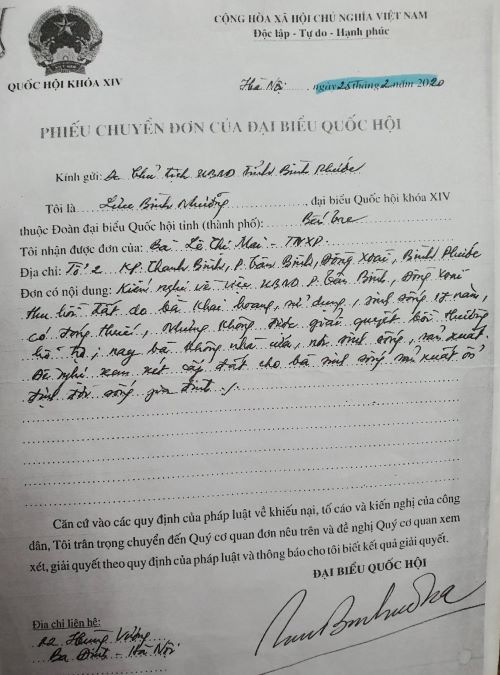 CỘNG HÒA XÃ HỘI CHỦ NGHĨA VIỆT NAM
Độc lập - Tự do - Hạnh phúc
QUỐC HỘI KHÓA XIV
Hà Nội ngày 25 tháng 2 năm 2020
PHIẾU CHUYỂN ĐƠN CỦA ĐẠI BIỂU QUỐC HỘI
Kính gửi: Chủ tịch UBND tỉnh Bình Phước
Tôi là Lưu Bình Nhưỡng, đại biểu Quốc hội khóa XIV
thuộc Đoàn đại biểu Quốc hội tỉnh (thành phố): Bến Tre
Tôi nhận được đơn của: Bà Lê Thị Mai - TNXP.
Địa chỉ: Tổ 2 KP. Thanh Bình, P. Tân Bình, Đồng Xoài, Bình Phước
Đơn có nội dung: Kiến nghị về việc UBND P. Tân Bình, Đồng Xoài
thu hồi đất do bà khai hoang, sử dụng, sinh sống 17 năm,
có đóng thuế, nhưng không được giải quyết bồi thường
hỗ trợ, nay bà không nhà cửa, nơi sinh sống, sản xuất.
Đề nghị xem xét cấp đất cho bà sinh sống sản xuất ổn
định đời sống gia đình./.
Căn cứ vào các quy định của pháp luật về khiếu nại, tố cáo và kiến nghị của công
dân, Tôi trân trọng chuyển đến Quý cơ quan đơn nêu trên và đề nghị Quý cơ quan xem
xét, giải quyết theo quy định của pháp luật và thông báo cho tôi biết kết quả giải quyết.
ĐẠI BIỂU QUỐC HỘI
Địa chỉ liên hệ:
22 Hùng Vương
Ba Đình - Hà Nội